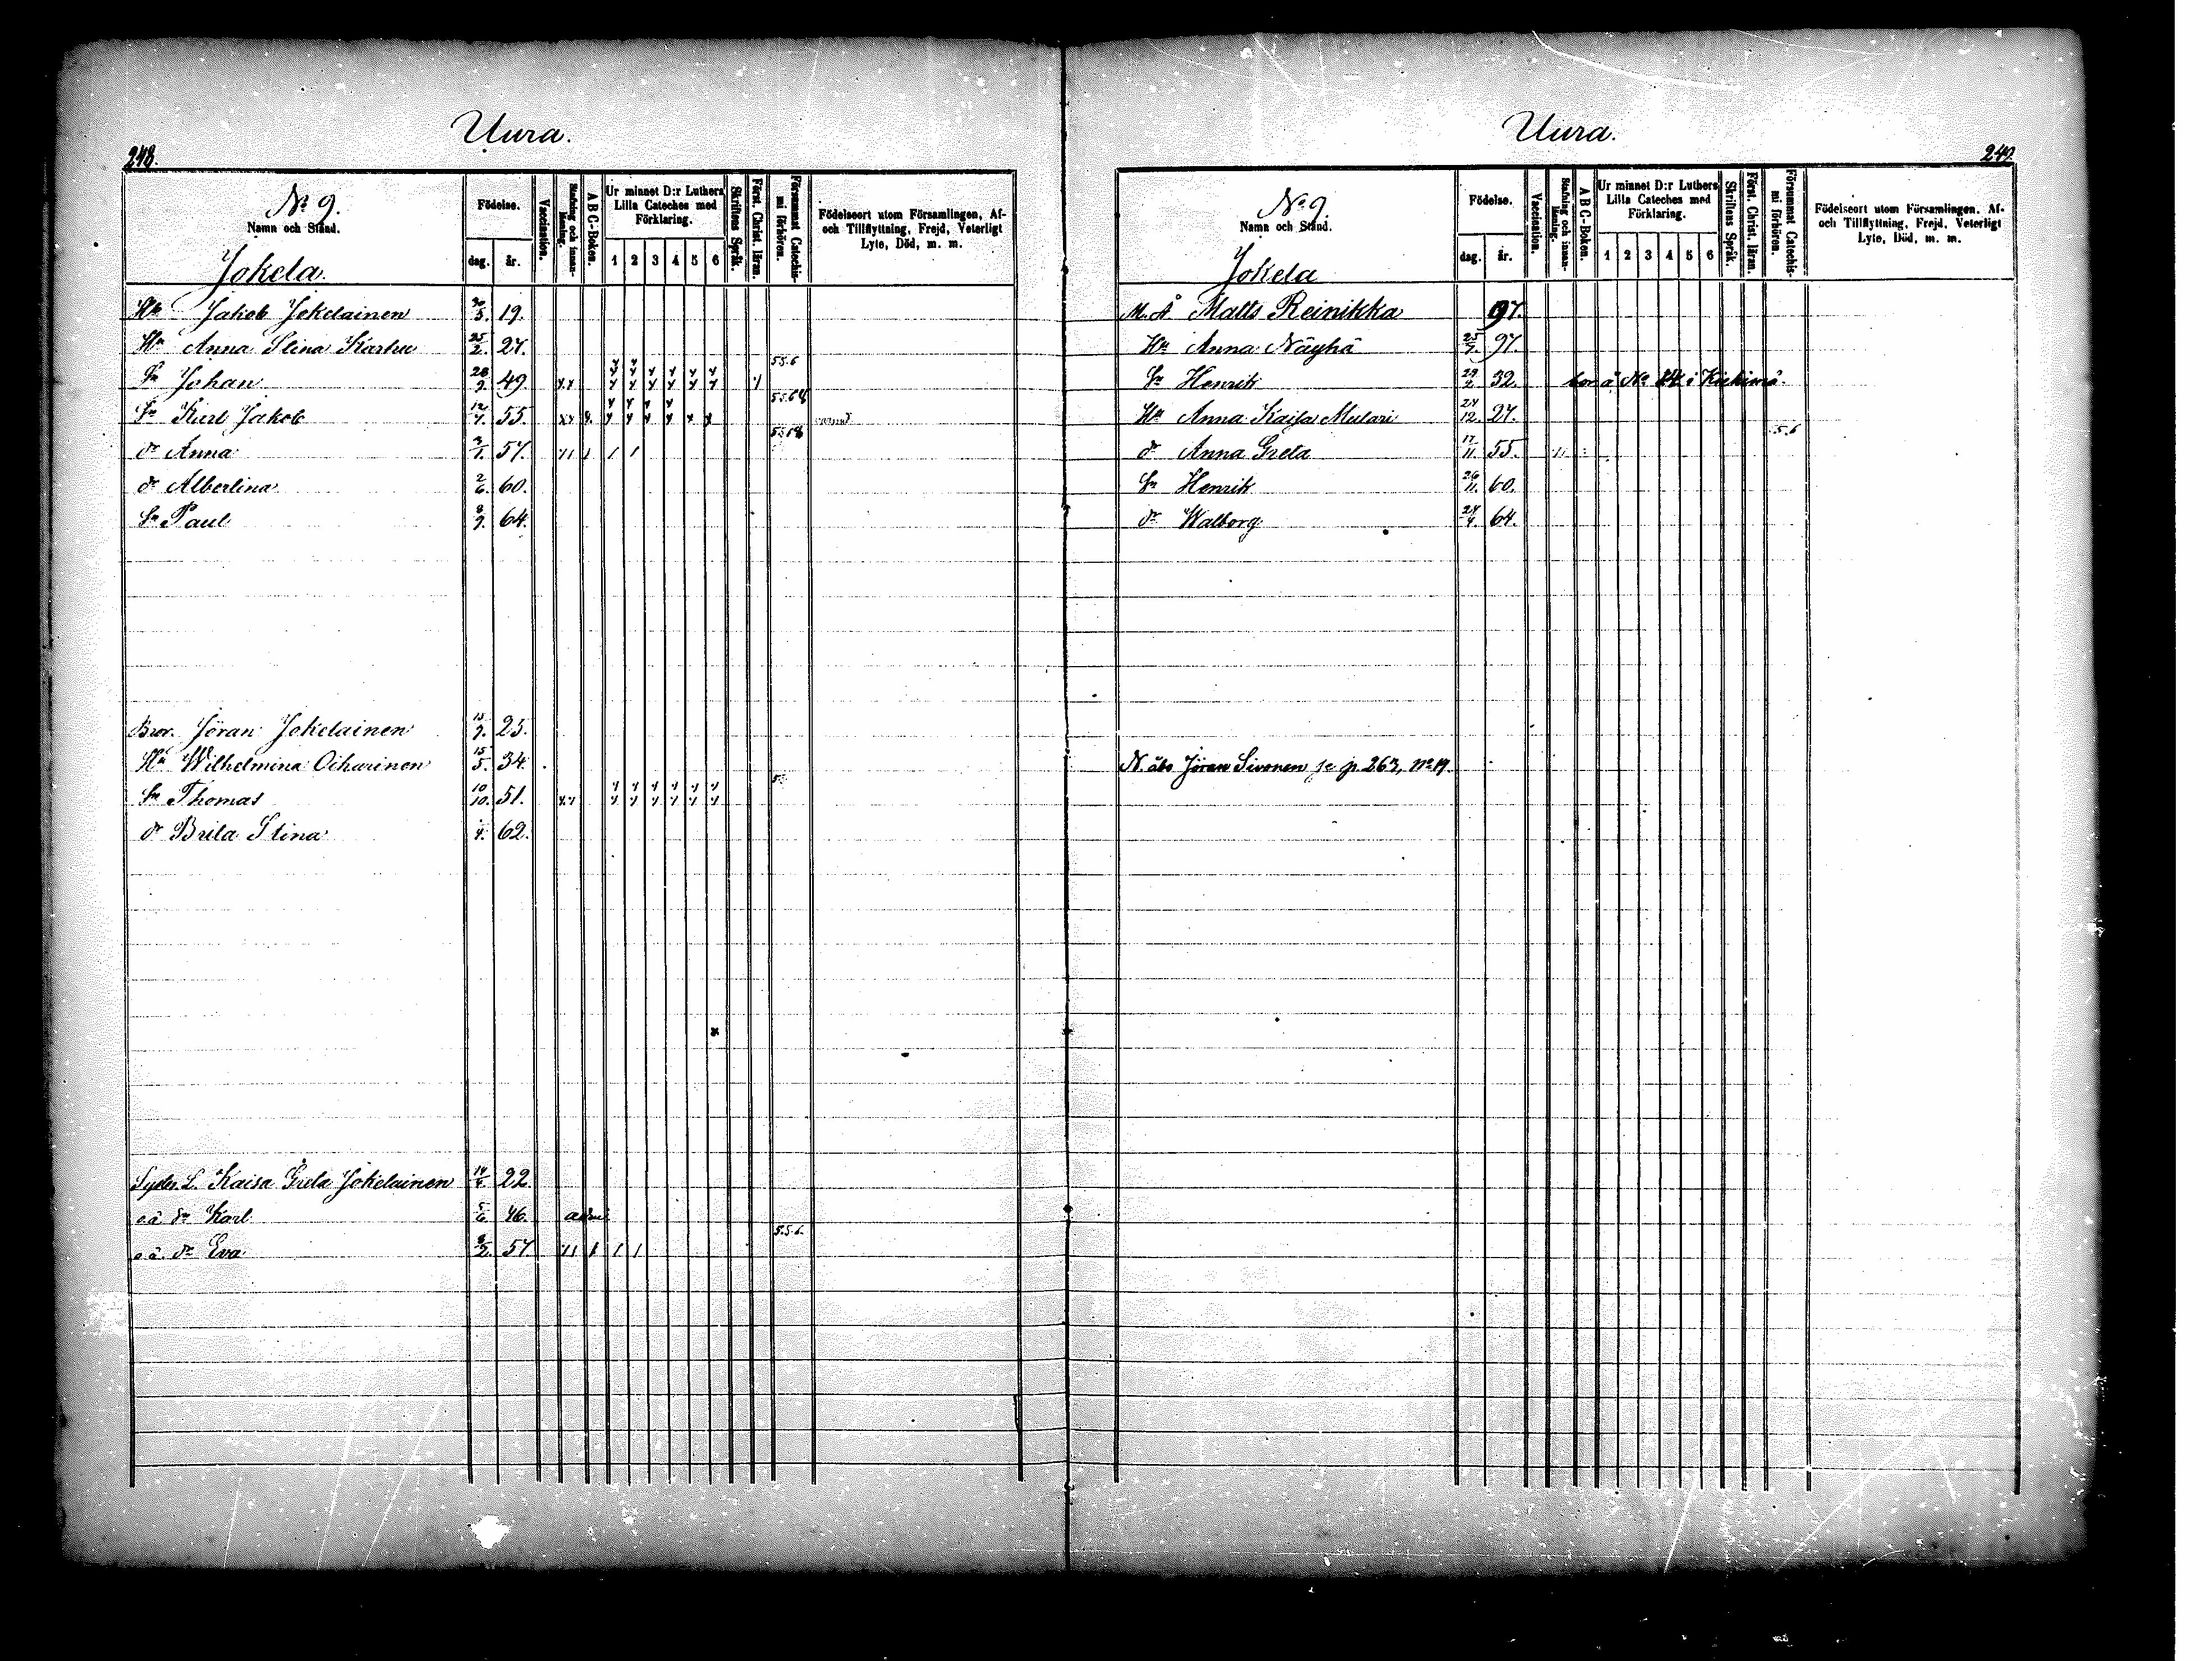 Uura.
248.
No 9.
Namn och Stånd.
Jokela.
Födelse.
dag. år.
Vaccination.
Stafning och innanläsning.
A B C-Boken.
Ur minnet D:r Luthers Lilla Cateches med Förklaring.
1 2 3 4 5 6
Skriftens Språk.
Först. Christ. läran.
Försummat Catechismi förhören.
Födelseort utom Församlingen, Af- och Tillflyttning, Frejd, Veterligt Lyte, Död, m. m.
Jakob Jokelainen 30/5. 19.
Hu Anna Stina Karhu 25/2. 27.
55.6
Sn Johan 28/9. 49
55.68
Sn Karl Jakob 12/7. 55.
dr Anna 3/1. 57.
dr Albertina 2/6. 60.
Sn Paul 8/9. 64.
Bror. Jöran Jokelainen 15/9. 25.
Hu Wilhelmina Oikarinen 15/5. 34.
Sn Thomas 10/10. 51.
dr Brita Stina 62.
Syster. L. Kaisa Greta Jokelainen 22.
o.ä. Sn Karl 5/6 46.
5.5.6.
o.ä. dr Eva 8/2. 57
Uura.
249.
No 9.
Namn och Stånd.
Jokela
Födelse.
dag. år.
Vaccination.
Stafning och innanläsning.
A B C-Boken.
Ur minnet D:r Luthers Lilla Cateches med Förklaring.
1 2 3 4 5 6
Skriftens Språk.
Först. Christ. läran.
Försummat Catechismi förhören.
Födelseort utom Församlingen, Af- och Tillflyttning, Frejd, Veterligt Lyte, Död, m. m.
M. Å Matts Reinikka 97.
Hu Anna Näyhä 97.
Sn Henrik 32. bor å No 14 i Kiekimä.
Hu Anna Kaisa Mulari 24/12. 27.
5.6
dr Anna Greta 17/11. 55.
Sn Henrik 26/11. 60.
dr Walborg 64.
N åbo Jöran Sivonen se p. 263, no 19.